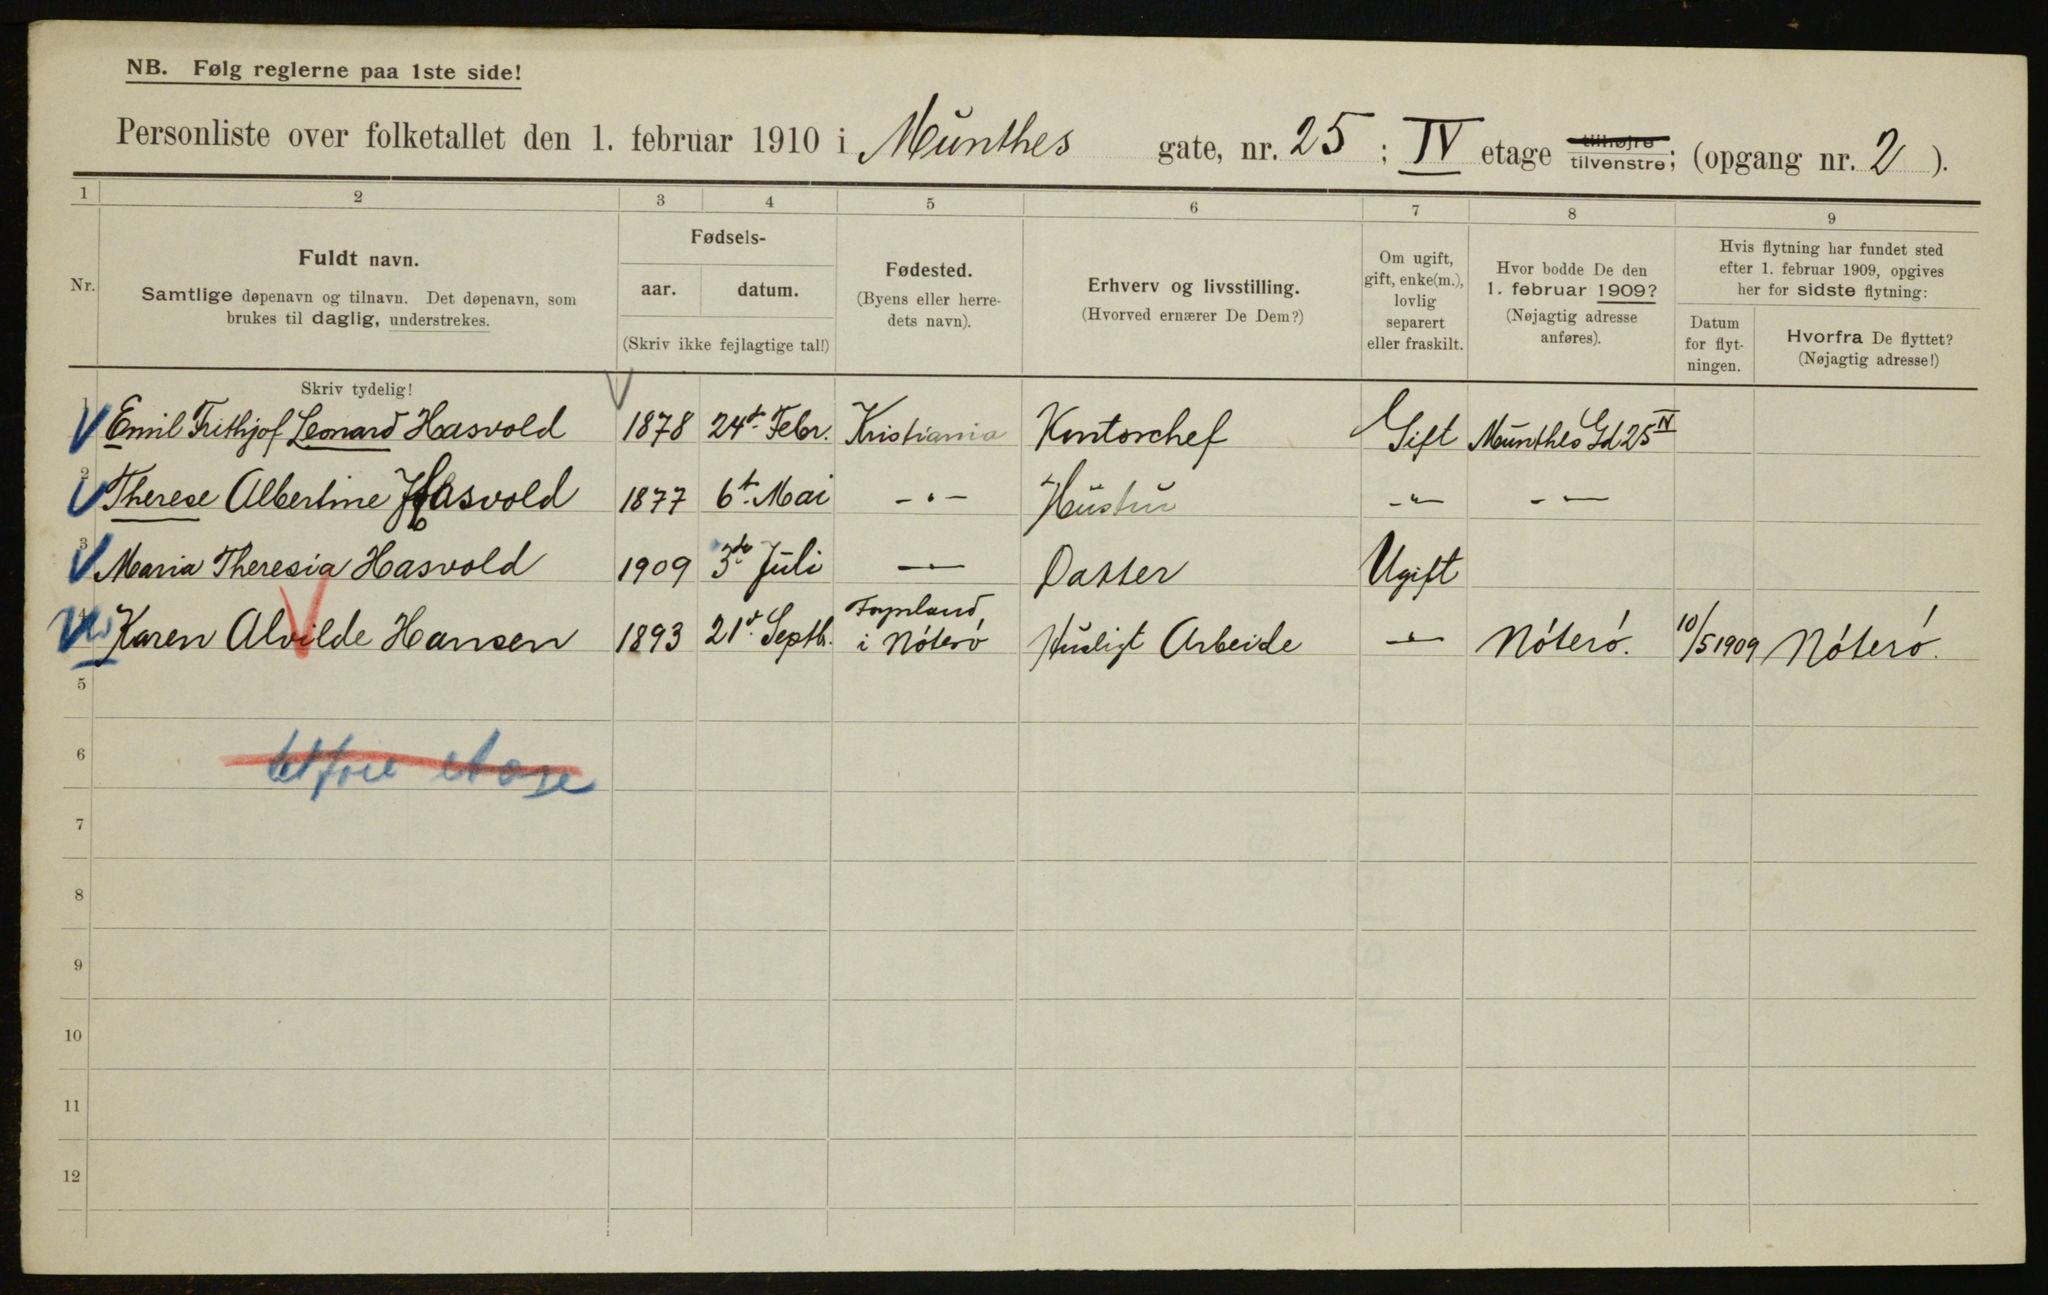 NB. Følg reglerne paa 1ste side!
Personliste over folketallet den 1. februar 1910 i Munthes gate, nr. 25 ; IV etage tilhøjre tilvenstre; (opgang nr. 2 ).
1 2 3 4 5 6 7 8 9
Nr.
Fuldt navn.
Samtlige døpenavn og tilnavn. Det døpenavn, som
brukes til daglig, understrekes.
Fødsels-
aar. datum.
(Skriv ikke fejlagtige tal!)
Fødested.
(Byens eller herre-
dets navn).
Erhverv og livsstilling.
(Hvorved ernærer De Dem?)
Om ugift,
gift, enke(m.),
lovlig
separert
eller fraskilt.
Hvor bodde De den
1. februar 1909?
(Nøjagtig adresse
anføres).
Hvis flytning har fundet sted
efter 1. februar 1909, opgives
her for sidste flytning:
Datum
for flyt-
ningen.
Hvorfra De flyttet?
(Nøjagtig adresse!)
Skriv tydelig!
1 Emil Frithjof Leonard Hasvold 1878 24d. Febr. Kristiania Kontorchef Gift Munthes Gd 25 IV
2 Therese Albertine Hasvold 1877 6t. Mai -"- Hustru -"- -"-
3 Maria Theresia Hasvold 1909 3de Juli -"- Datter Ugift
4 Karen Alvilde Hansen 1893 21d. Septb. Føynland i Nóteró Husligt Arbeide -"- Nóteró. 10/5 1909 Nóteró.
5
6 etage
7
8
9
10
11
12